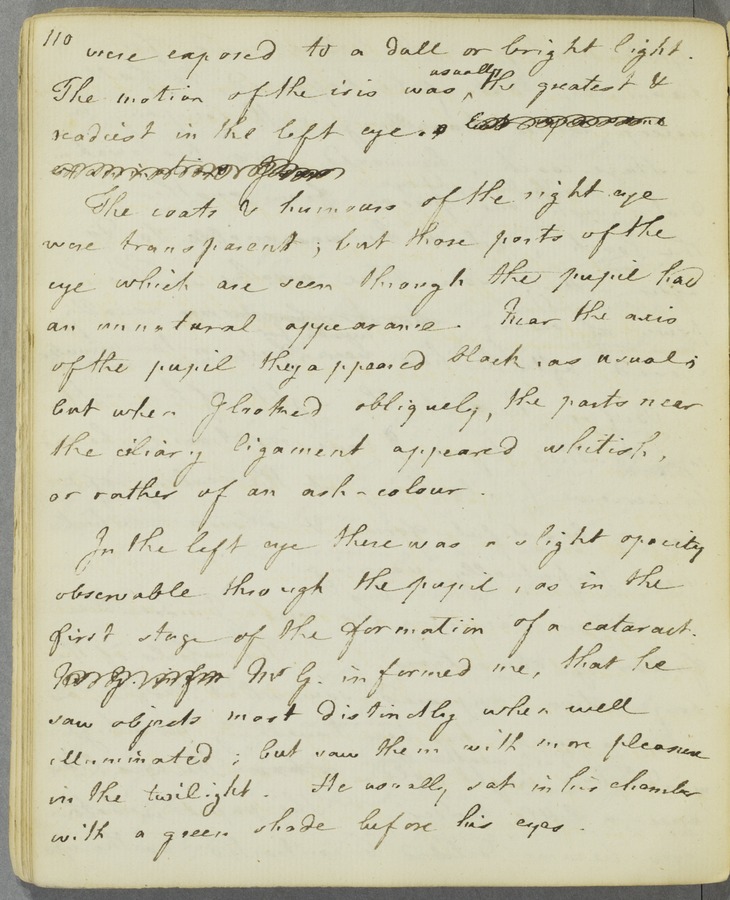 110
were exposed to a dull or bright light.
The motion of the iris was usually the greatest &
readiest in the left eye.
The coats & humours of the right eye
were transparent; but those parts of the
eye which are seen through the pupil had
an unnatural appearance. Near the axis
of the pupil they appeared black, as usual;
but when I looked obliquely, the parts near
the ciliary ligament appeared whitish,
or rather of an ash-colour.
In the left eye there was a slight opacity
observable through the pupil, as in the
first stage of the formation of a cataract.
Mr G. infor Mr G. informed me, that he
saw objects most distinctly when well
illuminated; but saw them with more pleasure
in the twilight. He usually sat in his chamber
with a green shade before his eyes.